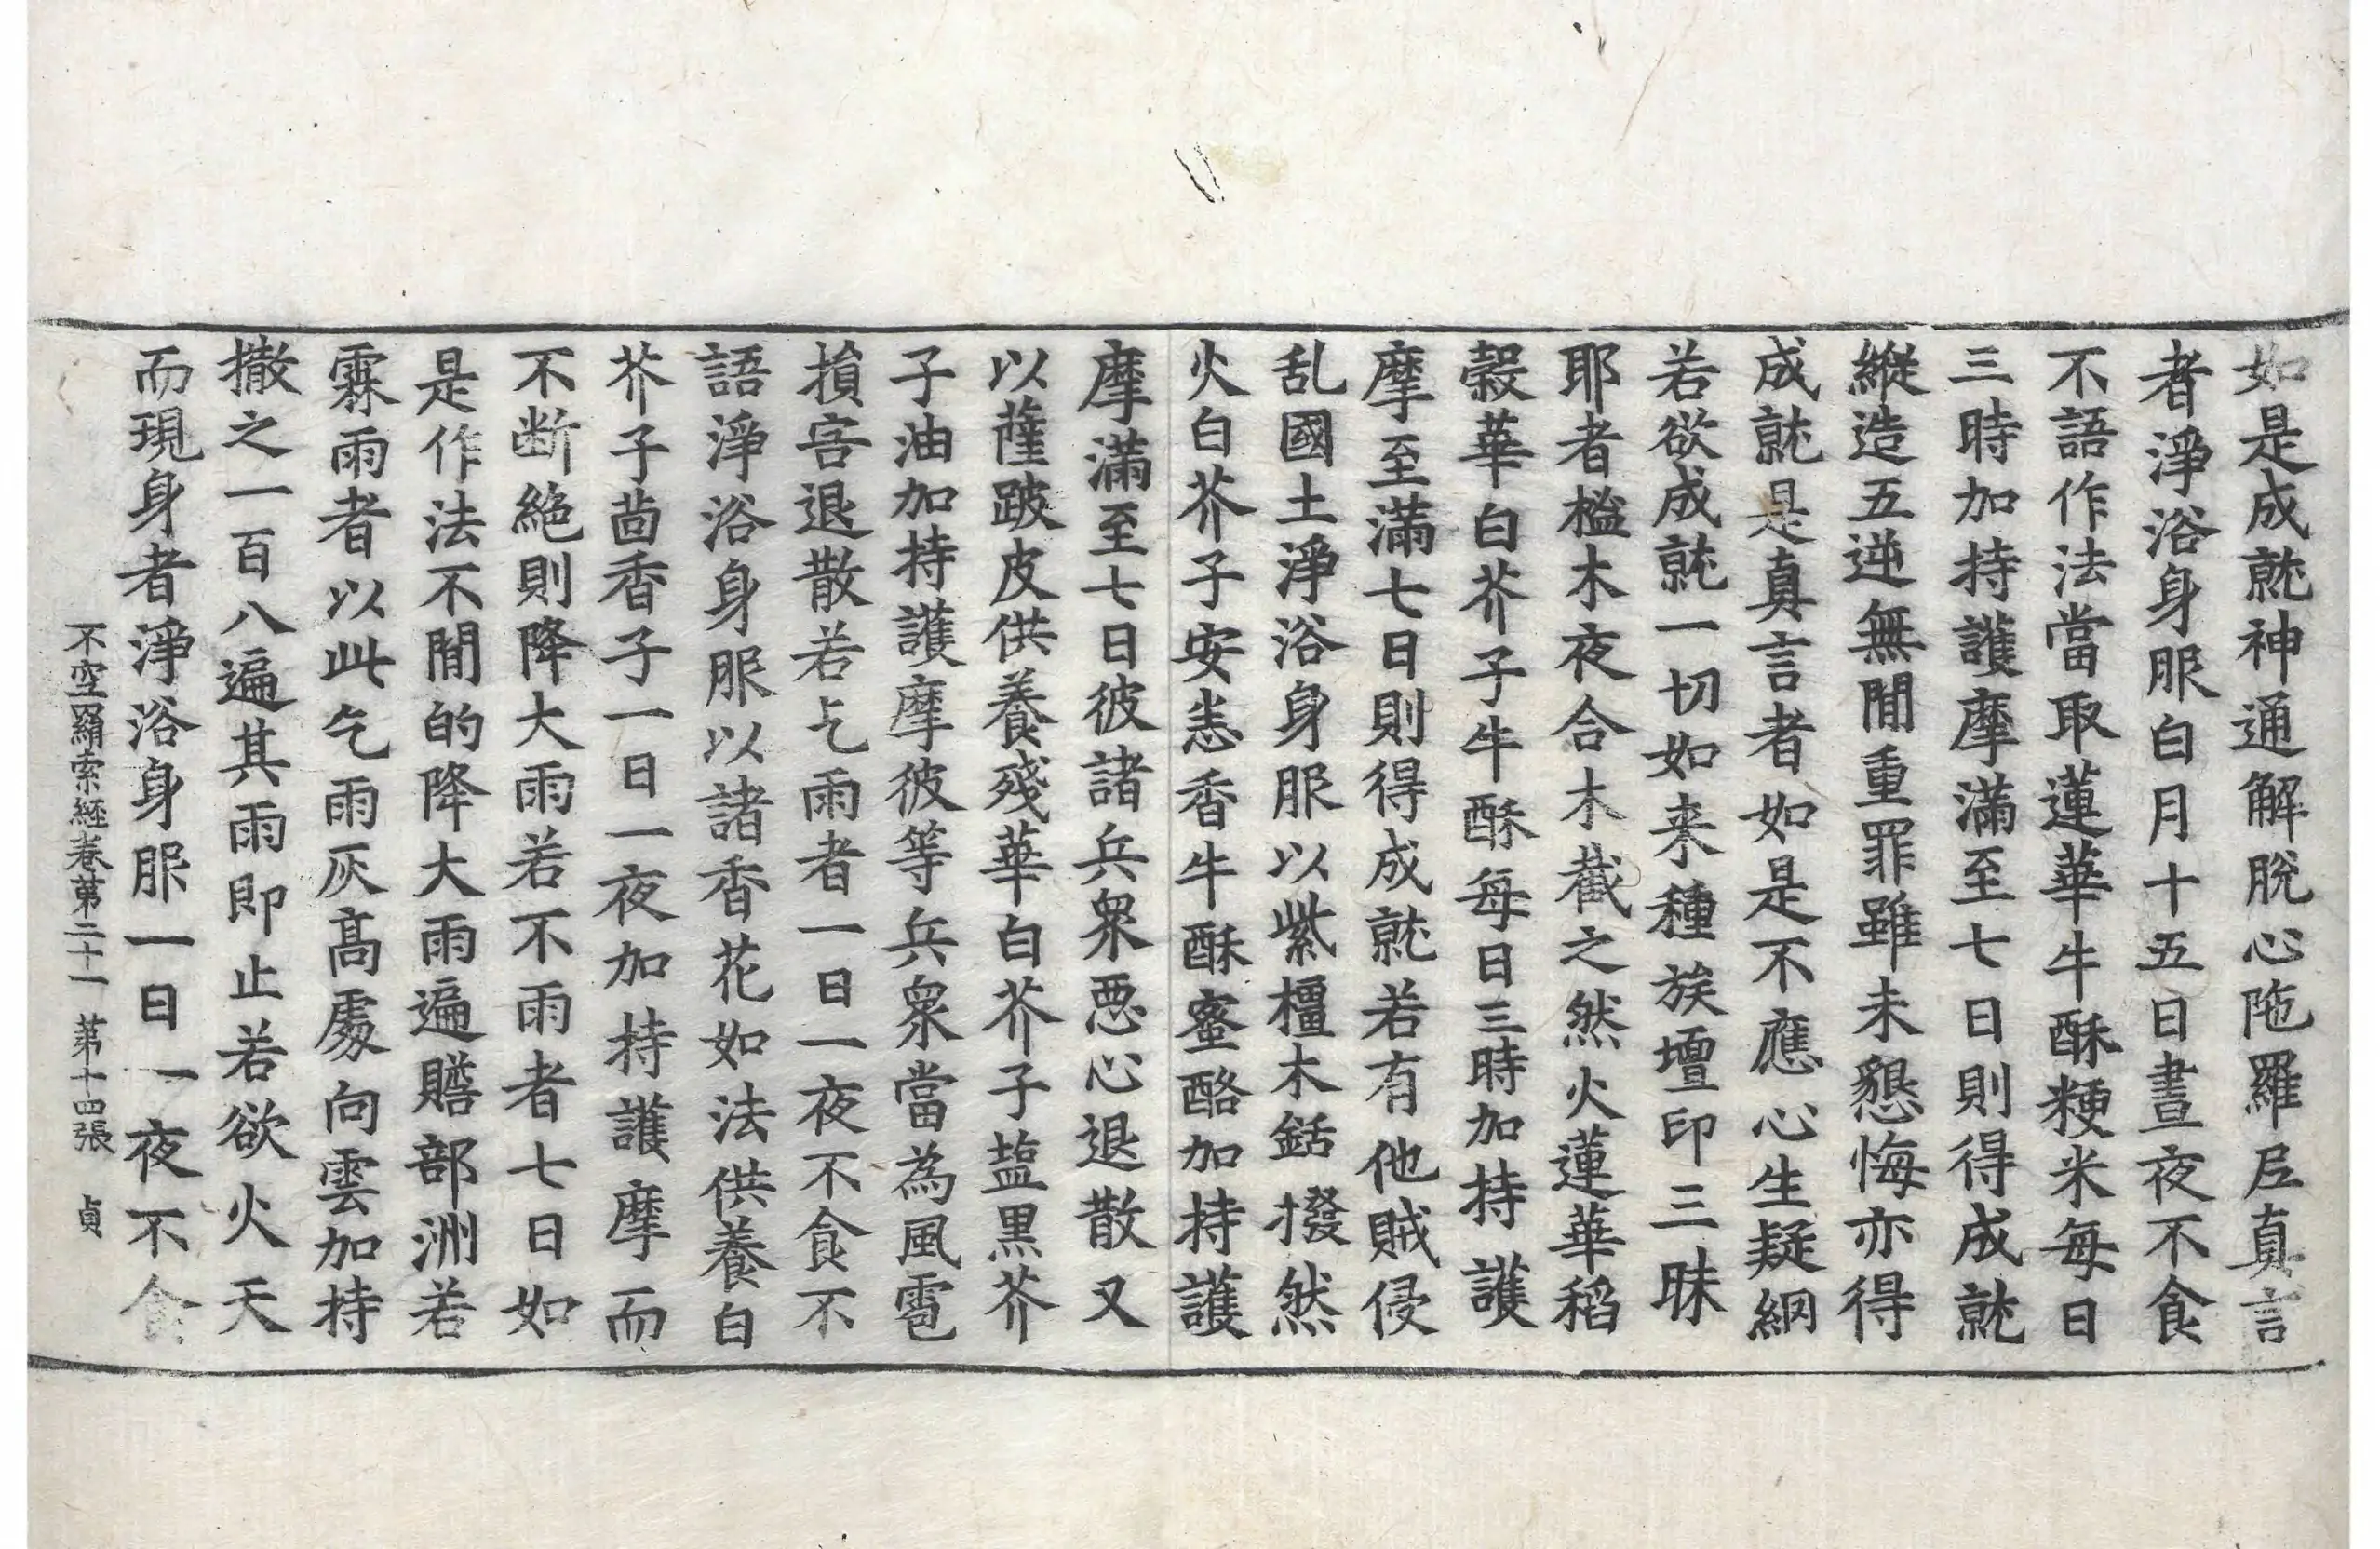 如是成就神通解脫心陁羅尼真言
者淨浴身服白月十五日晝夜不食
不語作法當取蓮華牛酥粳米每日
三時加持護摩滿至七日則得成就
縱造五逆無閒重罪雖未懇悔亦得
成就是真言者如是不應心生疑網
若欲成就一切如来種族壇印三昧
耶者榓木夜合木截之然火蓮華稻
糓華白芥子牛酥每日三時加持護
摩至滿七日則得成就若有他賊侵
乱國土淨浴身服以紫橿木銛撥然
火白芥子安悉香牛酥蜜酪加持護
摩滿至七日彼諸兵衆惡心退散又
以薩跛皮供養殘華白芥子塩黒芥
子油加持護摩彼等兵衆當為風雹
損害退散若乞雨者一日一夜不食不
語淨浴身服以諸香花如法供養白
芥子茴香子一日一夜加持護摩而
不断絶則降大雨若不雨者七日如
是作法不閒的降大雨遍贍部洲若
霖雨者以此乞雨灰髙處向雲加持
撒之一百八遍其雨即止若欲火天
而現身者淨浴身服一日一夜不食
不空羂索經卷第二十一　第十四張　貞